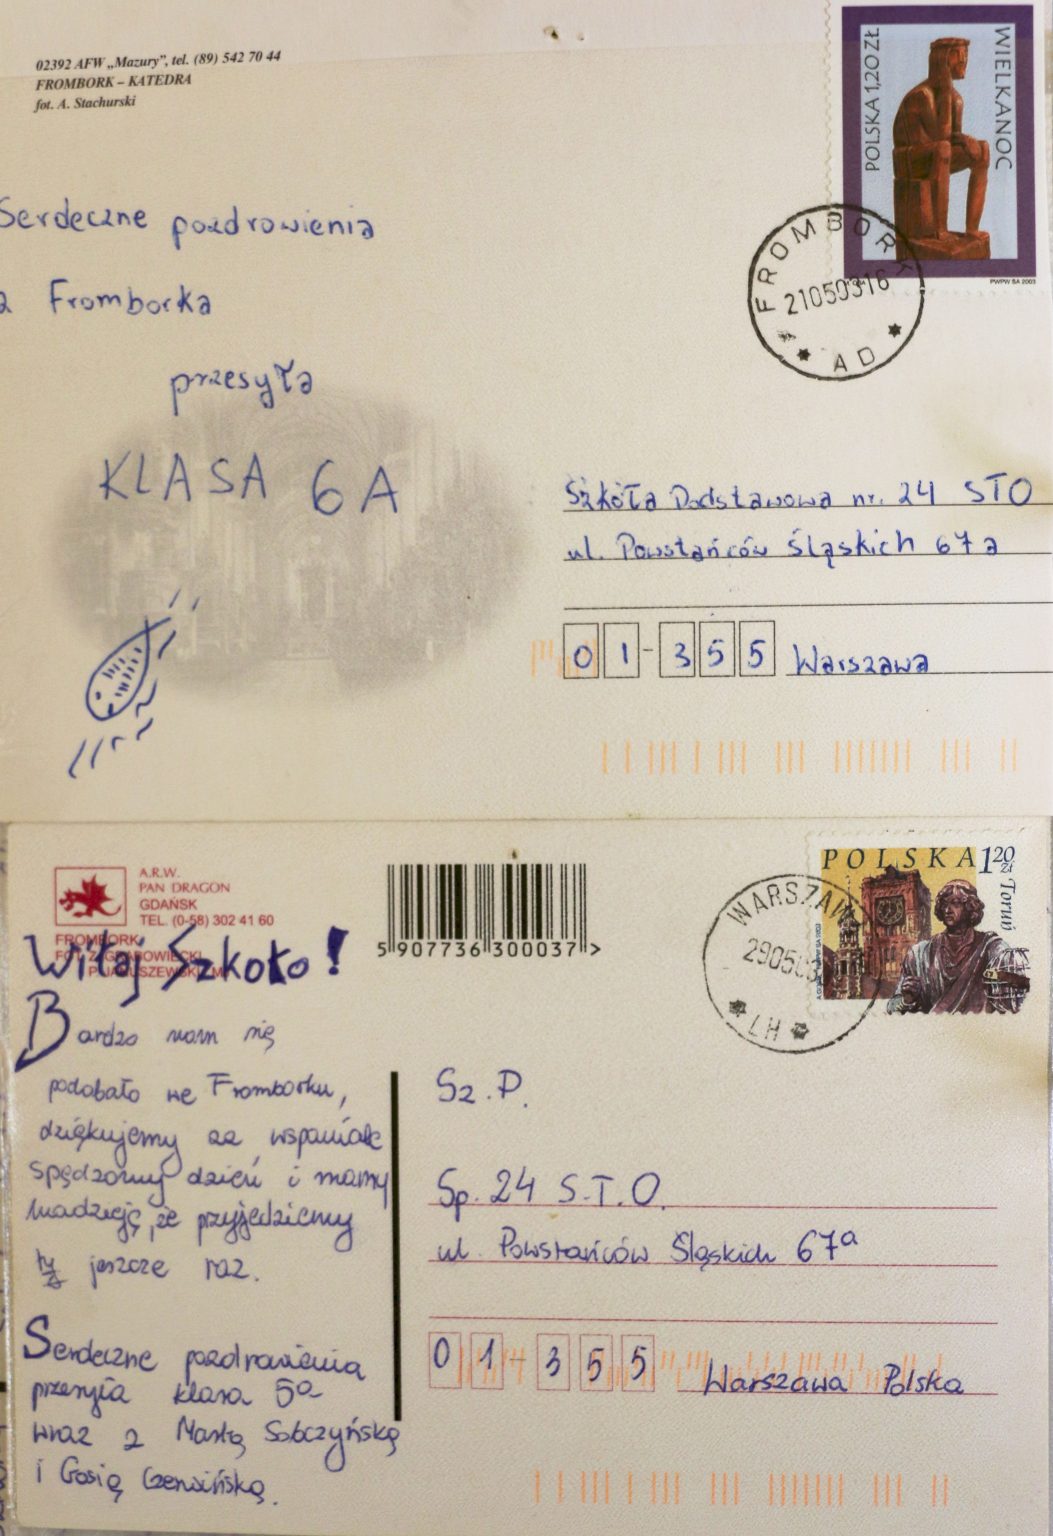 02392 AFW „Mazury”, tel. (89) 542 70 44
FROMBORK – KATEDRA
fot. A. Stachurski
POLSKA 1,20 ZŁ
WIELKANOC
PWPW SA 2003
FROMBORK
21050316
AD
Serdeczne pozdrowienia
z Fromborka
przesyła
KLASA 6A
Szkoła Podstawowa nr. 24 STO
ul. Powstańców Śląskich 67a
01-355 Warszawa
A.R.W.
PAN DRAGON
GDAŃSK
TEL. (0-58) 302 41 60
FROMBORK
FOT.
5 907736 300037 >
POLSKA 1,20 zł
Toruń
WARSZAWA
290503
LH
Witaj Szkoło!
Bardzo nam się
podobało we Fromborku,
dziękujemy za wspaniale
spędzony dzień i mamy
nadzieję, że przyjedziemy
tu jeszcze raz.
Serdeczne pozdrowienia
przesyła klasa 5a
wraz z Martą Sobczyńską
i Gosią Czerwińską.
Sz. P.
Sp. 24 S.T.O.
ul. Powstańców Śląskich 67a
01-355 Warszawa Polska